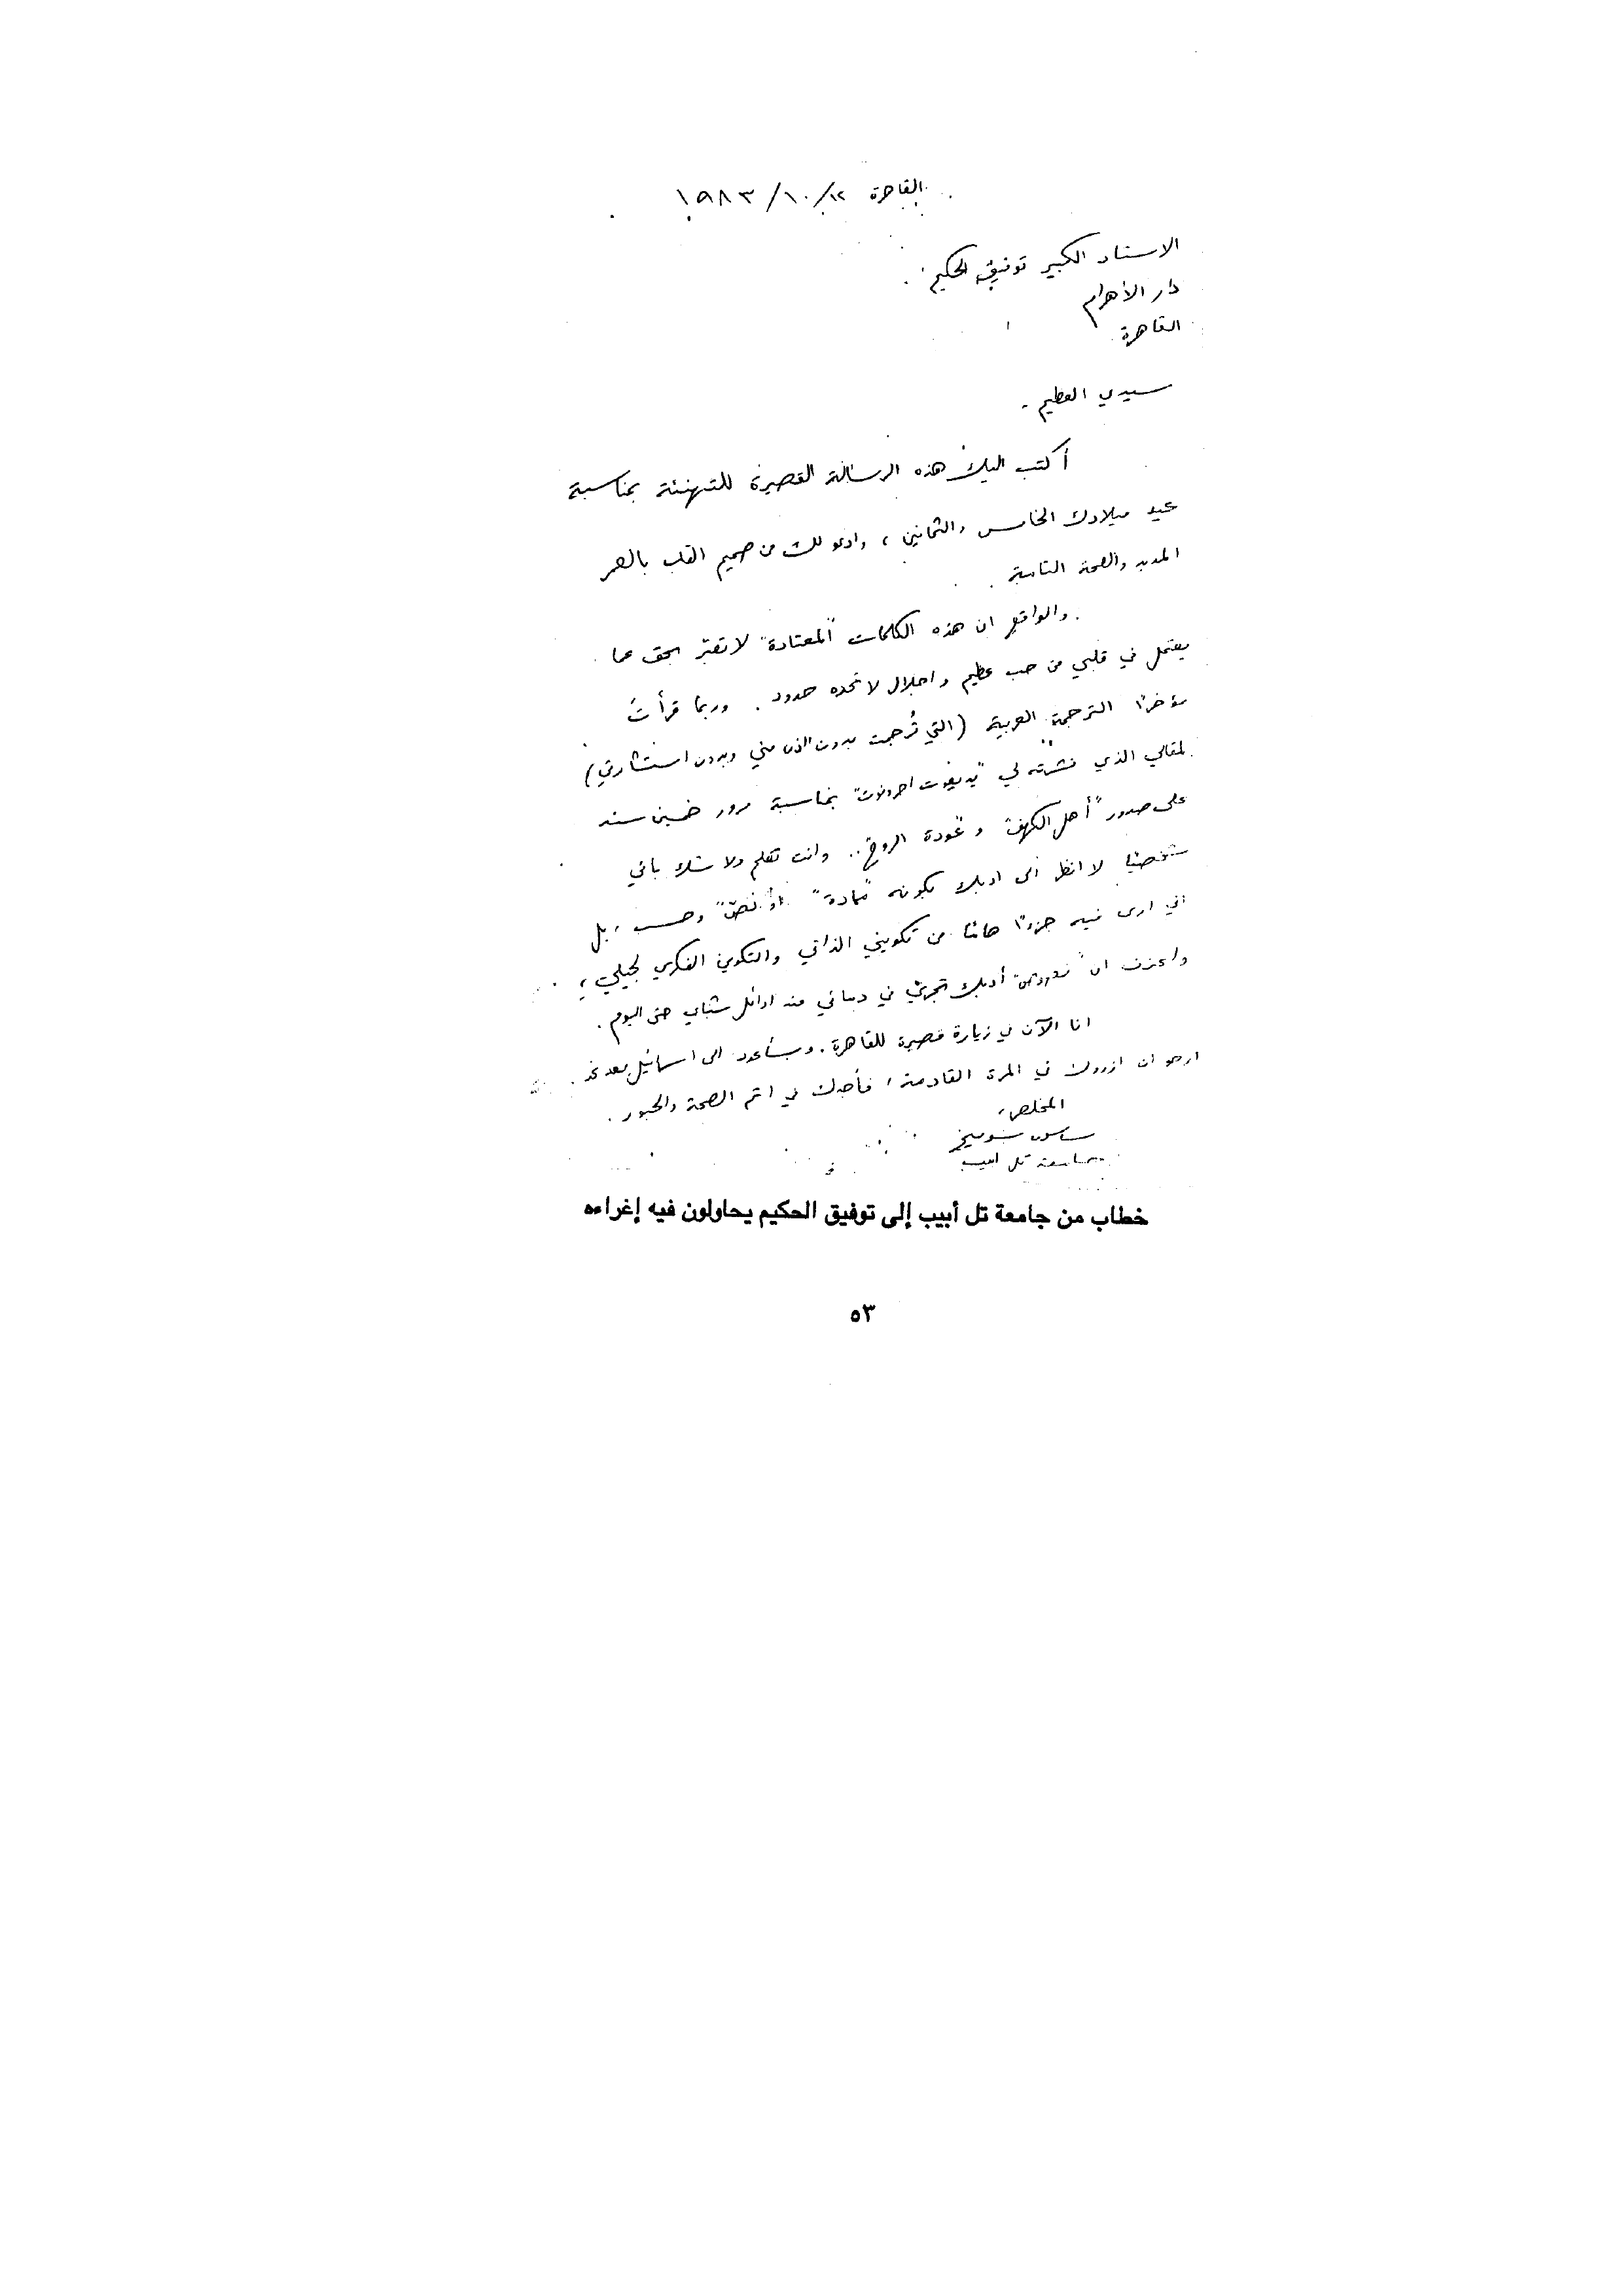 القاهرة ١٢/١٠/١٩٨٣
الاستاذ الكبير توفيق الحكيم
دار الأهرام
القاهرة
سيدي العظيم -
أكتب اليك هذه الرسالة القصيرة للتهنئة بمناسبة
عيد ميلادك الخامس والثمانين ، وادعو لك من صميم القلب بالعمر
المديد والصحة التامة .
والواقع ان هذه الكلمات "المعتادة" لا تعبّر بحق عما
يعتمل في قلبي من حب عظيم واجلال لا تحده حدود . وربما قرأتَ
مؤخرًا الترجمة العربية (التي تُرجمت بدون اذن مني وبدون استشارتي)
لمقالي الذي نشرته لي "يديعوت احرونوت" بمناسبة مرور خمسين سنة
على صدور "أهل الكهف" و "عودة الروح" .. وانت تعلم ولا شك باني
شخصيًا لا انظر الى ادبك بكونه "مادة" او "نصّ" وحسب ، بل
اني ارى فيه جزءًا هامًا من تكويني الذاتي والتكوين الفكري لجيلي ،
واعترف ان أدبك تجري في دمائي منذ اوائل شبابي حتى اليوم .
انا الآن في زيارة قصيرة للقاهرة . وسأعود الى اسرائيل بعد غد .
ارجو ان ازورك في المرة القادمة ، فأجدك في اتم الصحة والحبور .
المخلص ،
ساسون سوميخ
جامعة تل ابيب
خطاب من جامعة تل أبيب إلى توفيق الحكيم يحاولون فيه إغراءه
٥٣